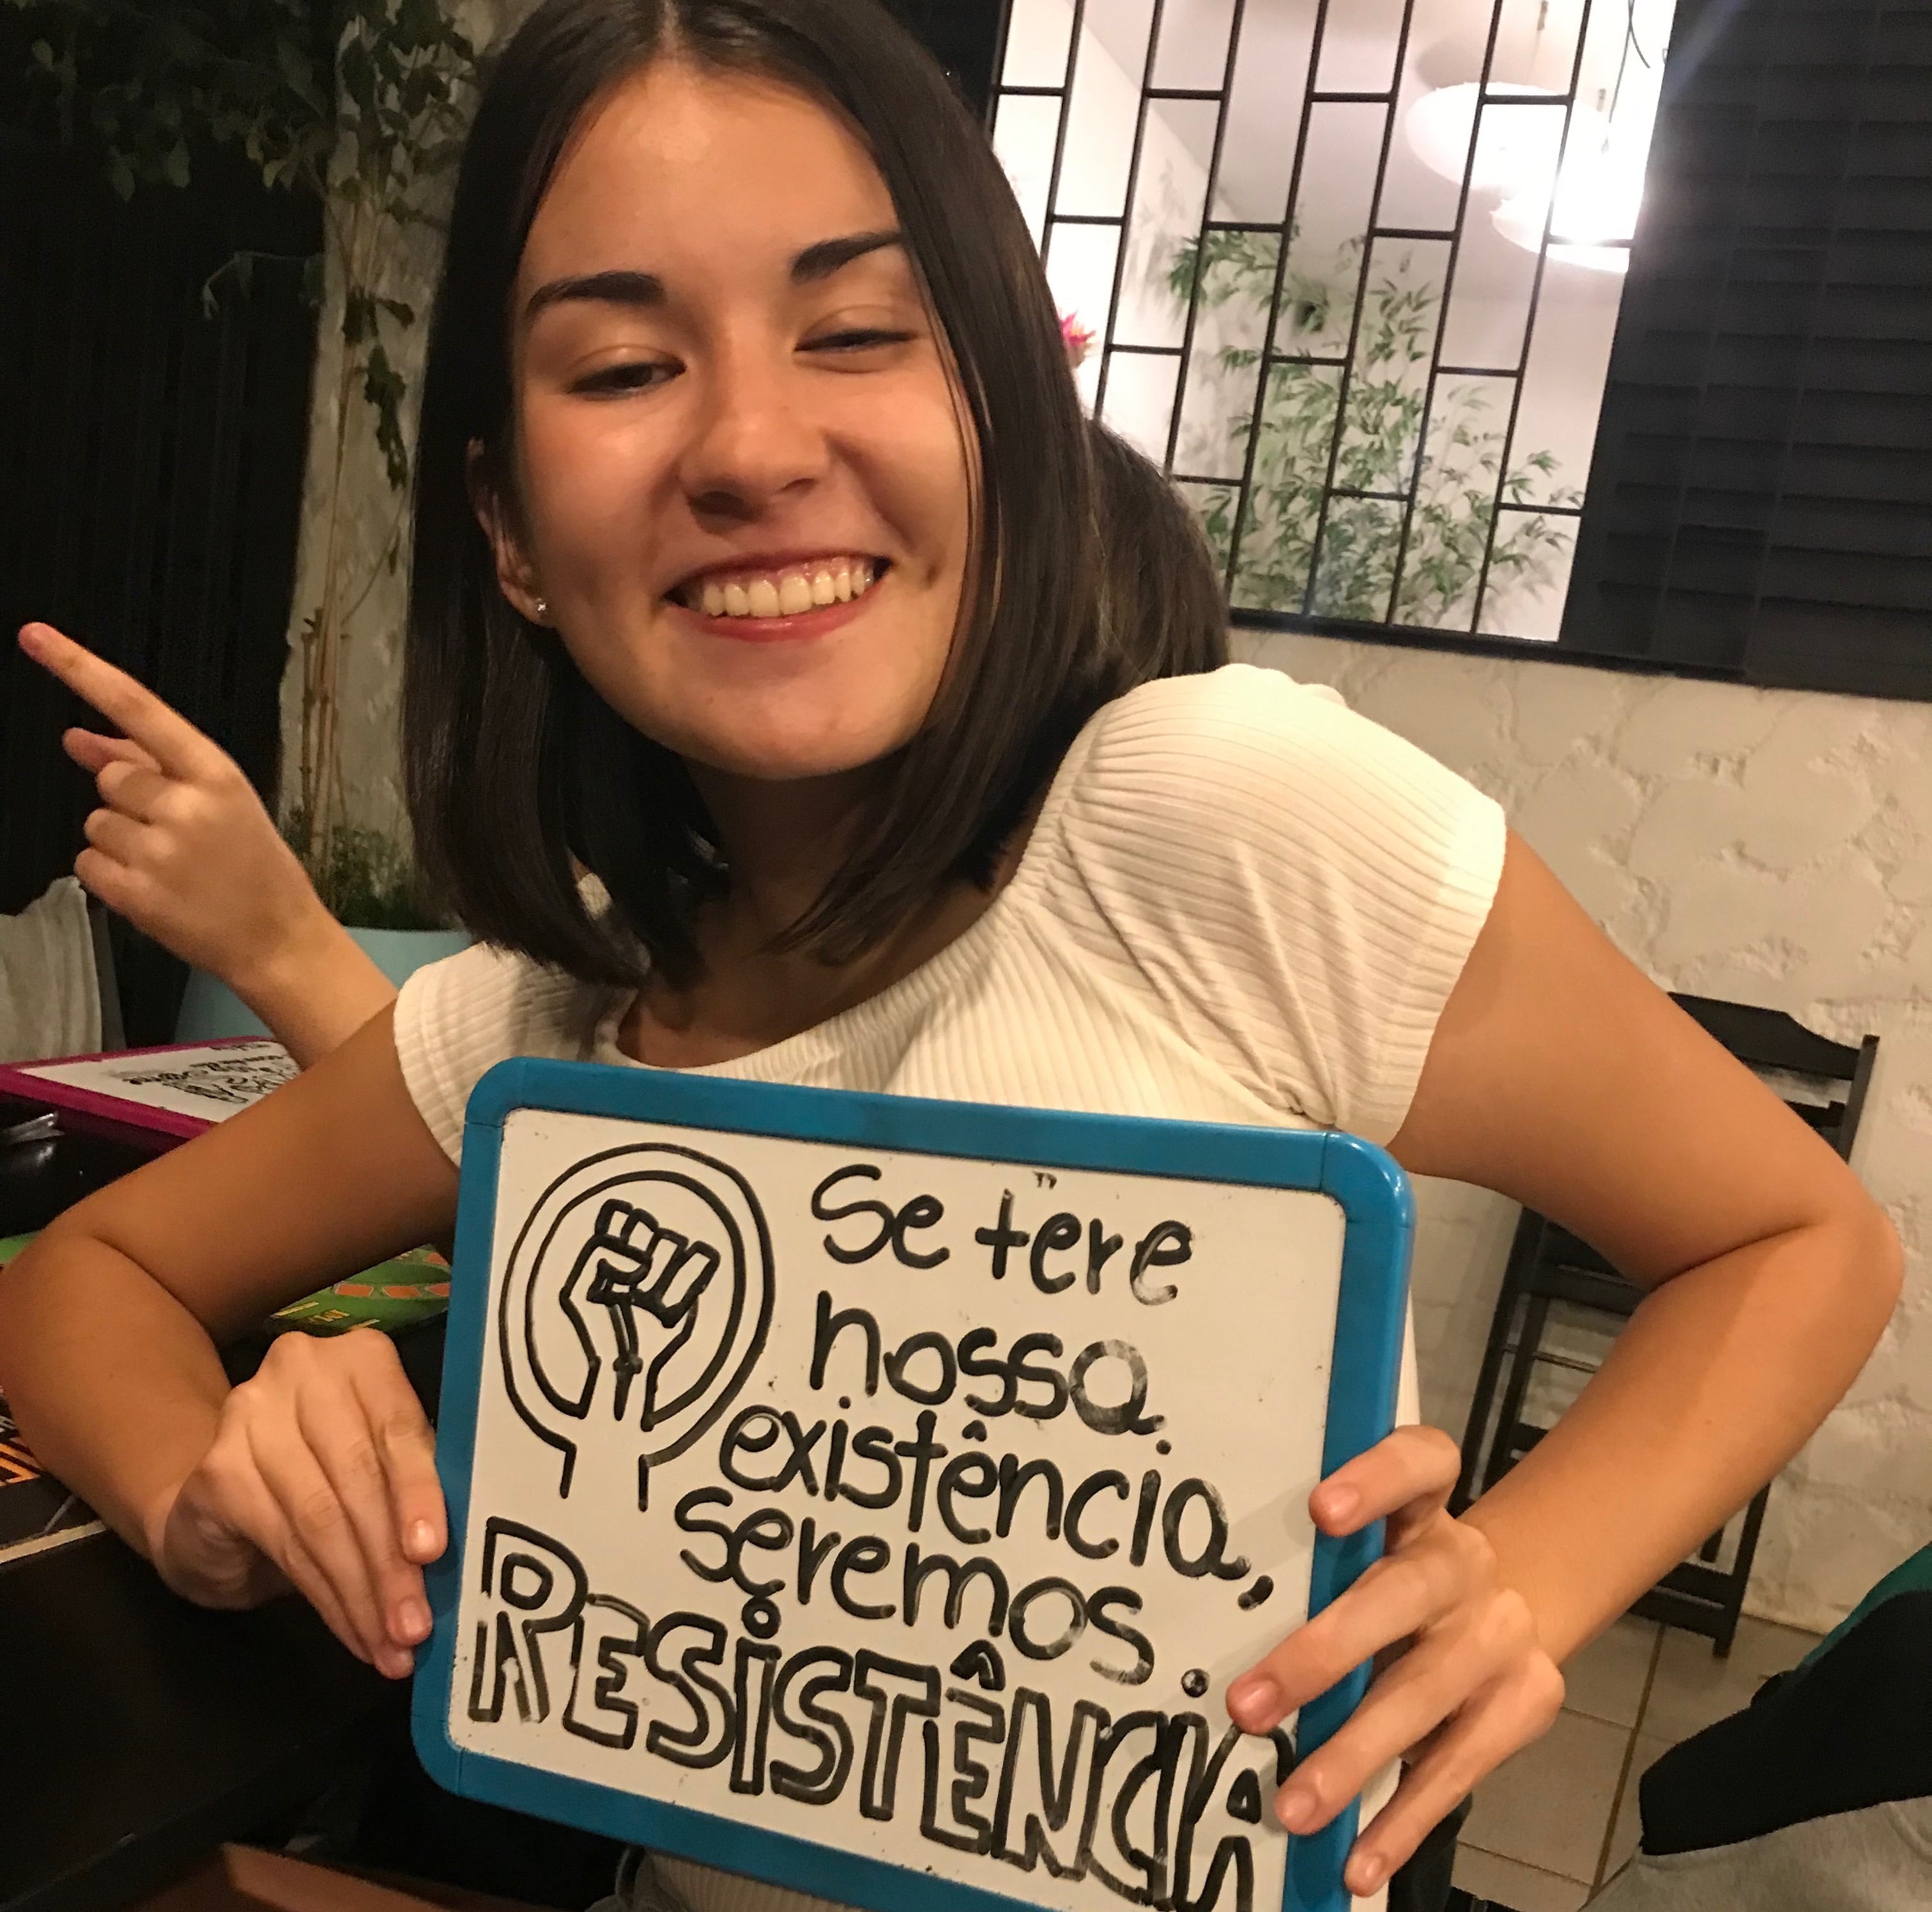 Se fere
nossa
existência,
seremos
RESISTÊNCIA